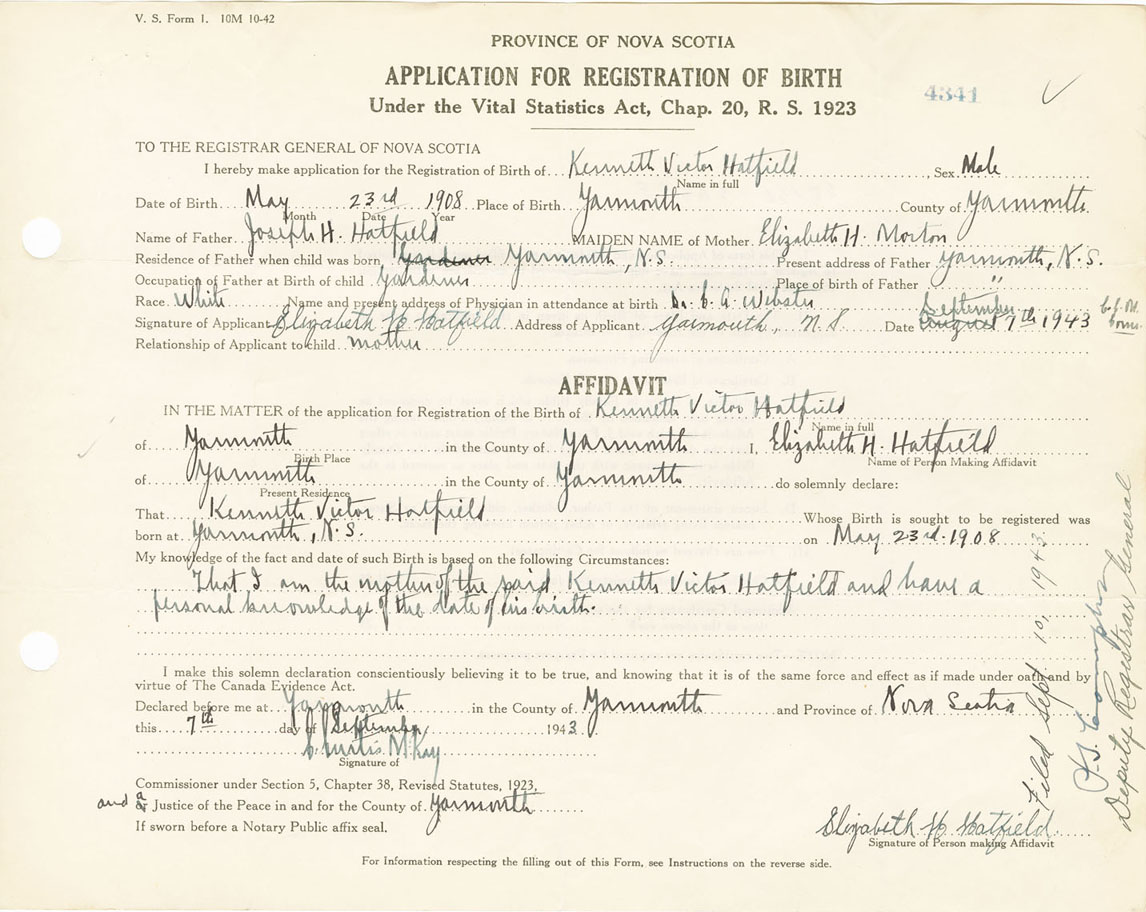 V. S. Form 1. 10M 10-42
PROVINCE OF NOVA SCOTIA
APPLICATION FOR REGISTRATION OF BIRTH
4341
Under the Vital Statistics Act, Chap. 20, R. S. 1923
TO THE REGISTRAR GENERAL OF NOVA SCOTIA
I hereby make application for the Registration of Birth of Kenneth Victor Hatfield Sex Male
Name in full
Date of Birth May 23rd 1908 Place of Birth Yarmouth County of Yarmouth
Month Date Year
Name of Father Joseph H. Hatfield MAIDEN NAME of Mother Elizabeth H. Morton
Residence of Father when child was born Gardener Yarmouth, N.S. Present address of Father Yarmouth, N.S.
Occupation of Father at Birth of child Gardener Place of birth of Father " 
Race White Name and present address of Physician in attendance at birth Dr. C. A. Webster September
Signature of Applicant Elizabeth H Hatfield Address of Applicant Yarmouth, N.S. Date August 7th 1943
Relationship of Applicant to child mother
AFFIDAVIT
IN THE MATTER of the application for Registration of the Birth of Kenneth Victor Hatfield
Name in full
of Yarmouth in the County of Yarmouth I, Elizabeth H. Hatfield
Birth Place Name of Person Making Affidavit
of Yarmouth in the County of Yarmouth do solemnly declare:
Present Residence
That Kenneth Victor Hatfield Whose Birth is sought to be registered was
born at Yarmouth, N.S. on May 23rd 1908
My knowledge of the fact and date of such Birth is based on the following Circumstances:
That I am the mother of the said Kenneth Victor Hatfield and have a
personal knowledge of the date of his birth.
I make this solemn declaration conscientiously believing it to be true, and knowing that it is of the same force and effect as if made under oath and by
virtue of The Canada Evidence Act.
Declared before me at Yarmouth in the County of Yarmouth and Province of Nova Scotia
this 7th day of September 1943
C. Curtis McKay
Signature of
Commissioner under Section 5, Chapter 38, Revised Statutes, 1923,
and a or Justice of the Peace in and for the County of Yarmouth
If sworn before a Notary Public affix seal.
Elizabeth H Hatfield
Signature of Person making Affidavit
For Information respecting the filling out of this Form, see Instructions on the reverse side.
Filed Sept 10, 1943.
Deputy Registrar General